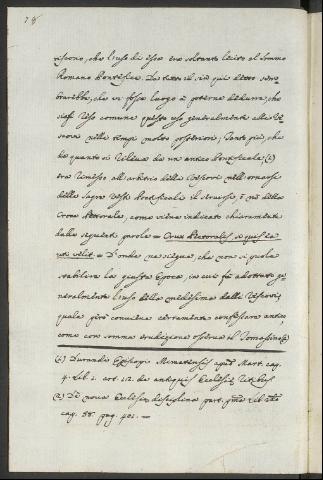 78
riscono, che l'uso di essa era soltanto lecito al Sommo
Romano Pontefice. Da tutto il sin qui detto sem-
brarebbe, che vi fosse luogo a poterne dedurre, che
siasi reso comune questo uso generalmente alli Ve-
scovi nelli tempi molto posteriori; Tanto più, che
da quanto si rileva da un antico Pontificale (1)
era rimesso all'arbitrio della Vescovi nell'ornarsi
delle Sagre Vesti Pontificali il servirsi, o nò della
Croce Pettorale, come viene indicato chiaramente
dalle seguenti parole = Crux Pectoralis, si quis ea
uti velit = Donde ne siegue, che non si può
stabilire la giusta Epoca, in cui fù adottato ge-
neralmente l'uso della medesima dalli Vescovi;
quale però conviene certamente confessare antico,
come con somma erudizione osserva il Tomassino (2)
(1) Durandi Episcopi Mimatensis apud Mart. cap.
4. Lib. 1. art. 12. de antiquis Ecclesiae Ritibus
(2) De nova Ecclesiae disciplina part. pma Lib. 2do
cap. 58. pag. 401. —